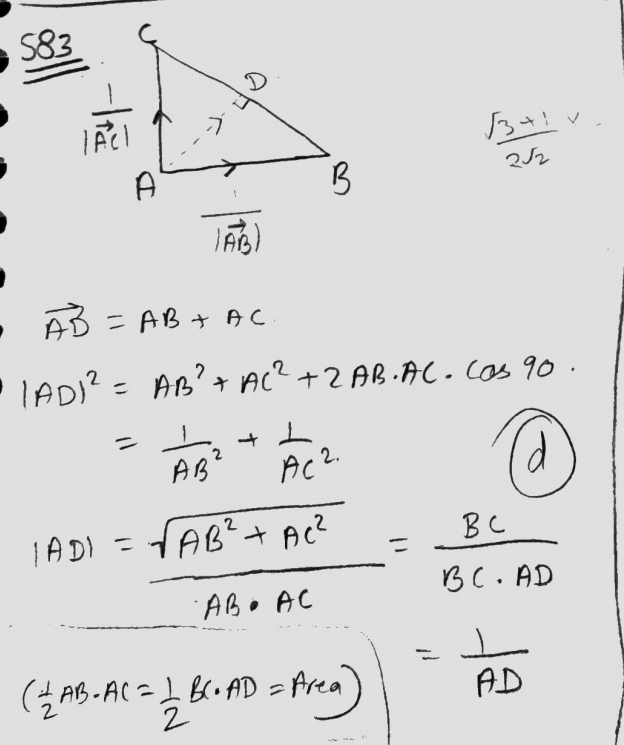 583
C
D
1/|AC⃗|
A
B
1/|AB⃗|
√3+1/2√2
AD⃗ = AB + AC
|AD|² = AB² + AC² + 2AB·AC·Cos 90.
= 1/AB² + 1/AC².
d
|AD| = √AB² + AC²/AB·AC = BC/BC·AD
= 1/AD
(½ AB·AC = ½ BC·AD = Area)